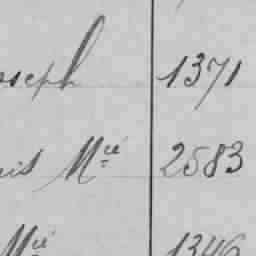 oseph 1371
uis Mie 2583
Mie 1346